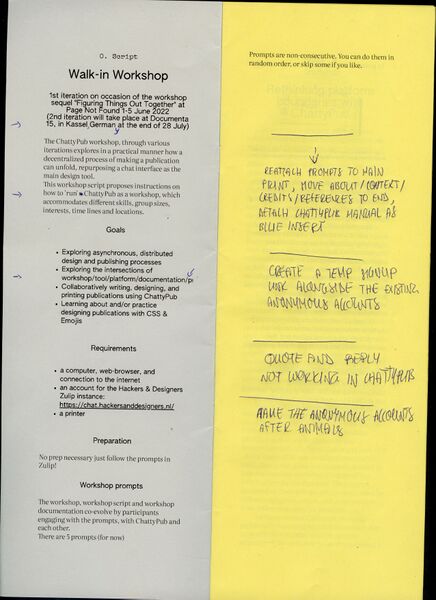 O. Script
Walk-in Workshop
1st iteration on occasion of the workshop
sequel "Figuring Things Out Together" at
Page Not Found 1-5 June 2022
(2nd iteration will take place at Documenta
15, in Kassel, German at the end of 28 July)
The ChattyPub workshop, through various
iterations explores in a practical manner how a
decentralized process of making a publication
can unfold, repurposing a chat interface as the
main design tool.
This workshop script proposes instructions on
how to 'run' ChattyPub as a workshop, which
accommodates different skills, group sizes,
interests, time lines and locations.
Goals
• Exploring asynchronous, distributed
design and publishing processes
• Exploring the intersections of
workshop/tool/platform/documentation/p
• Collaboratively writing, designing, and
printing publications using ChattyPub
• Learning about and/or practice
designing publications with CSS &
Emojis
Requirements
• a computer, web-browser, and
connection to the internet
• an account for the Hackers & Designers
Zulip instance:
https://chat.hackersanddesigners.nl/
• a printer
Preparation
No prep necessary just follow the prompts in
Zulip!
Workshop prompts
The workshop, workshop script and workshop
documentation co-evolve by participants
engaging with the prompts, with ChattyPub and
each other.
There are 5 prompts (for now)
Prompts are non-consecutive. You can do them in
random order, or skip some if you like.
REATTACH PROMPTS TO MAIN
PRINT, MOVE ABOUT/CONTEXT/
CREDITS/REFERENCES TO END,
DETACH CHATTYPUB MANUAL AS
BLUE INSERT
CREATE A TEMP SIGNUP
LINK ALONGSIDE THE EXISTING
ANONYMOUS ACCOUNTS
QUOTE AND REPLY
NOT WORKING IN CHATTYPUB
THE ANONYMOUS ACCOUNTS
AFTER ANIMALS